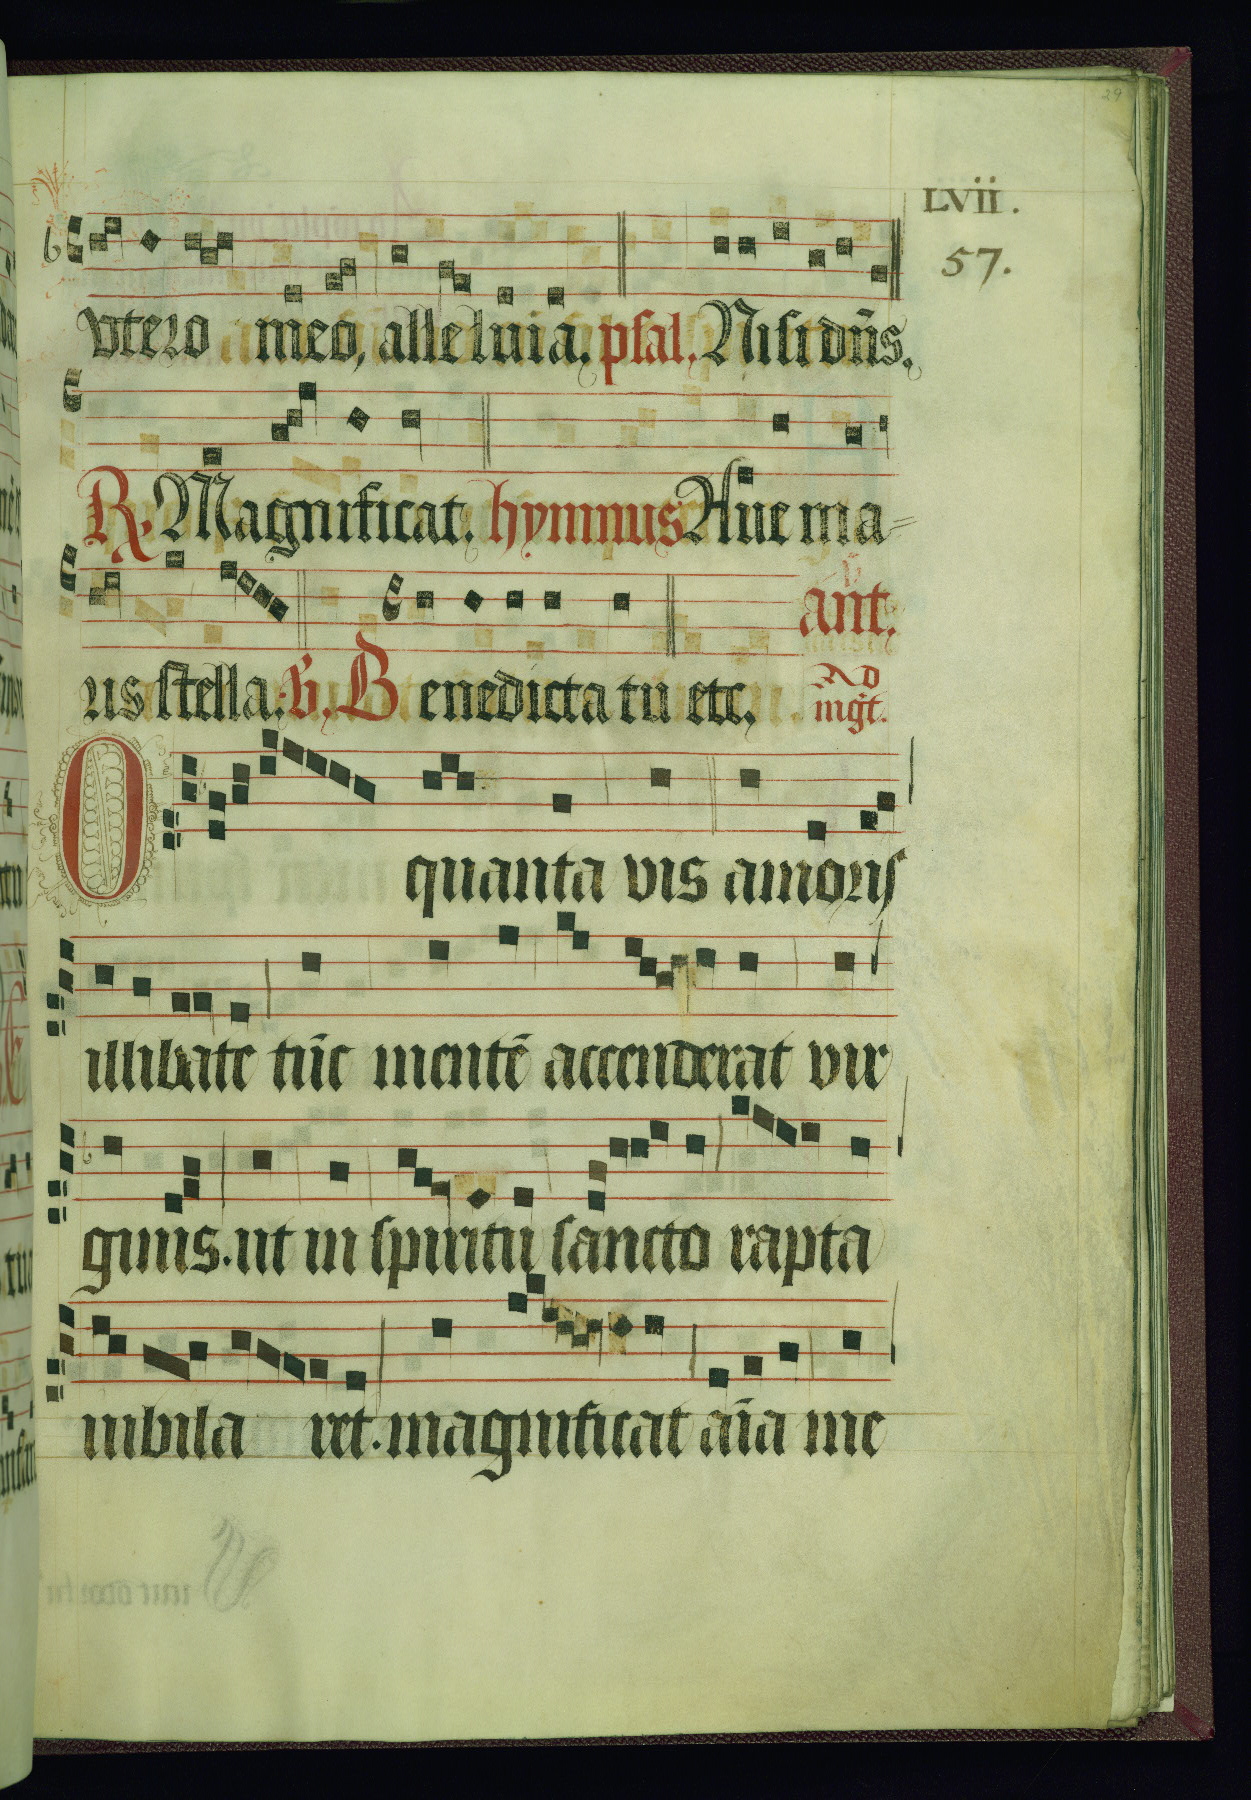 29
LVII.
57.
vtero meo, alleluia. psal. Nisi dn̄s.
R. Magnificat. hymnus Aue ma=
ris stella. V. Benedicta tu etc,
ant.
Ad
mḡt.
O quanta vis amoris
illibate tūc mentē accenderat vir
ginis. ut in spiritu sancto rapta
iubila ret. magnificat aīa me